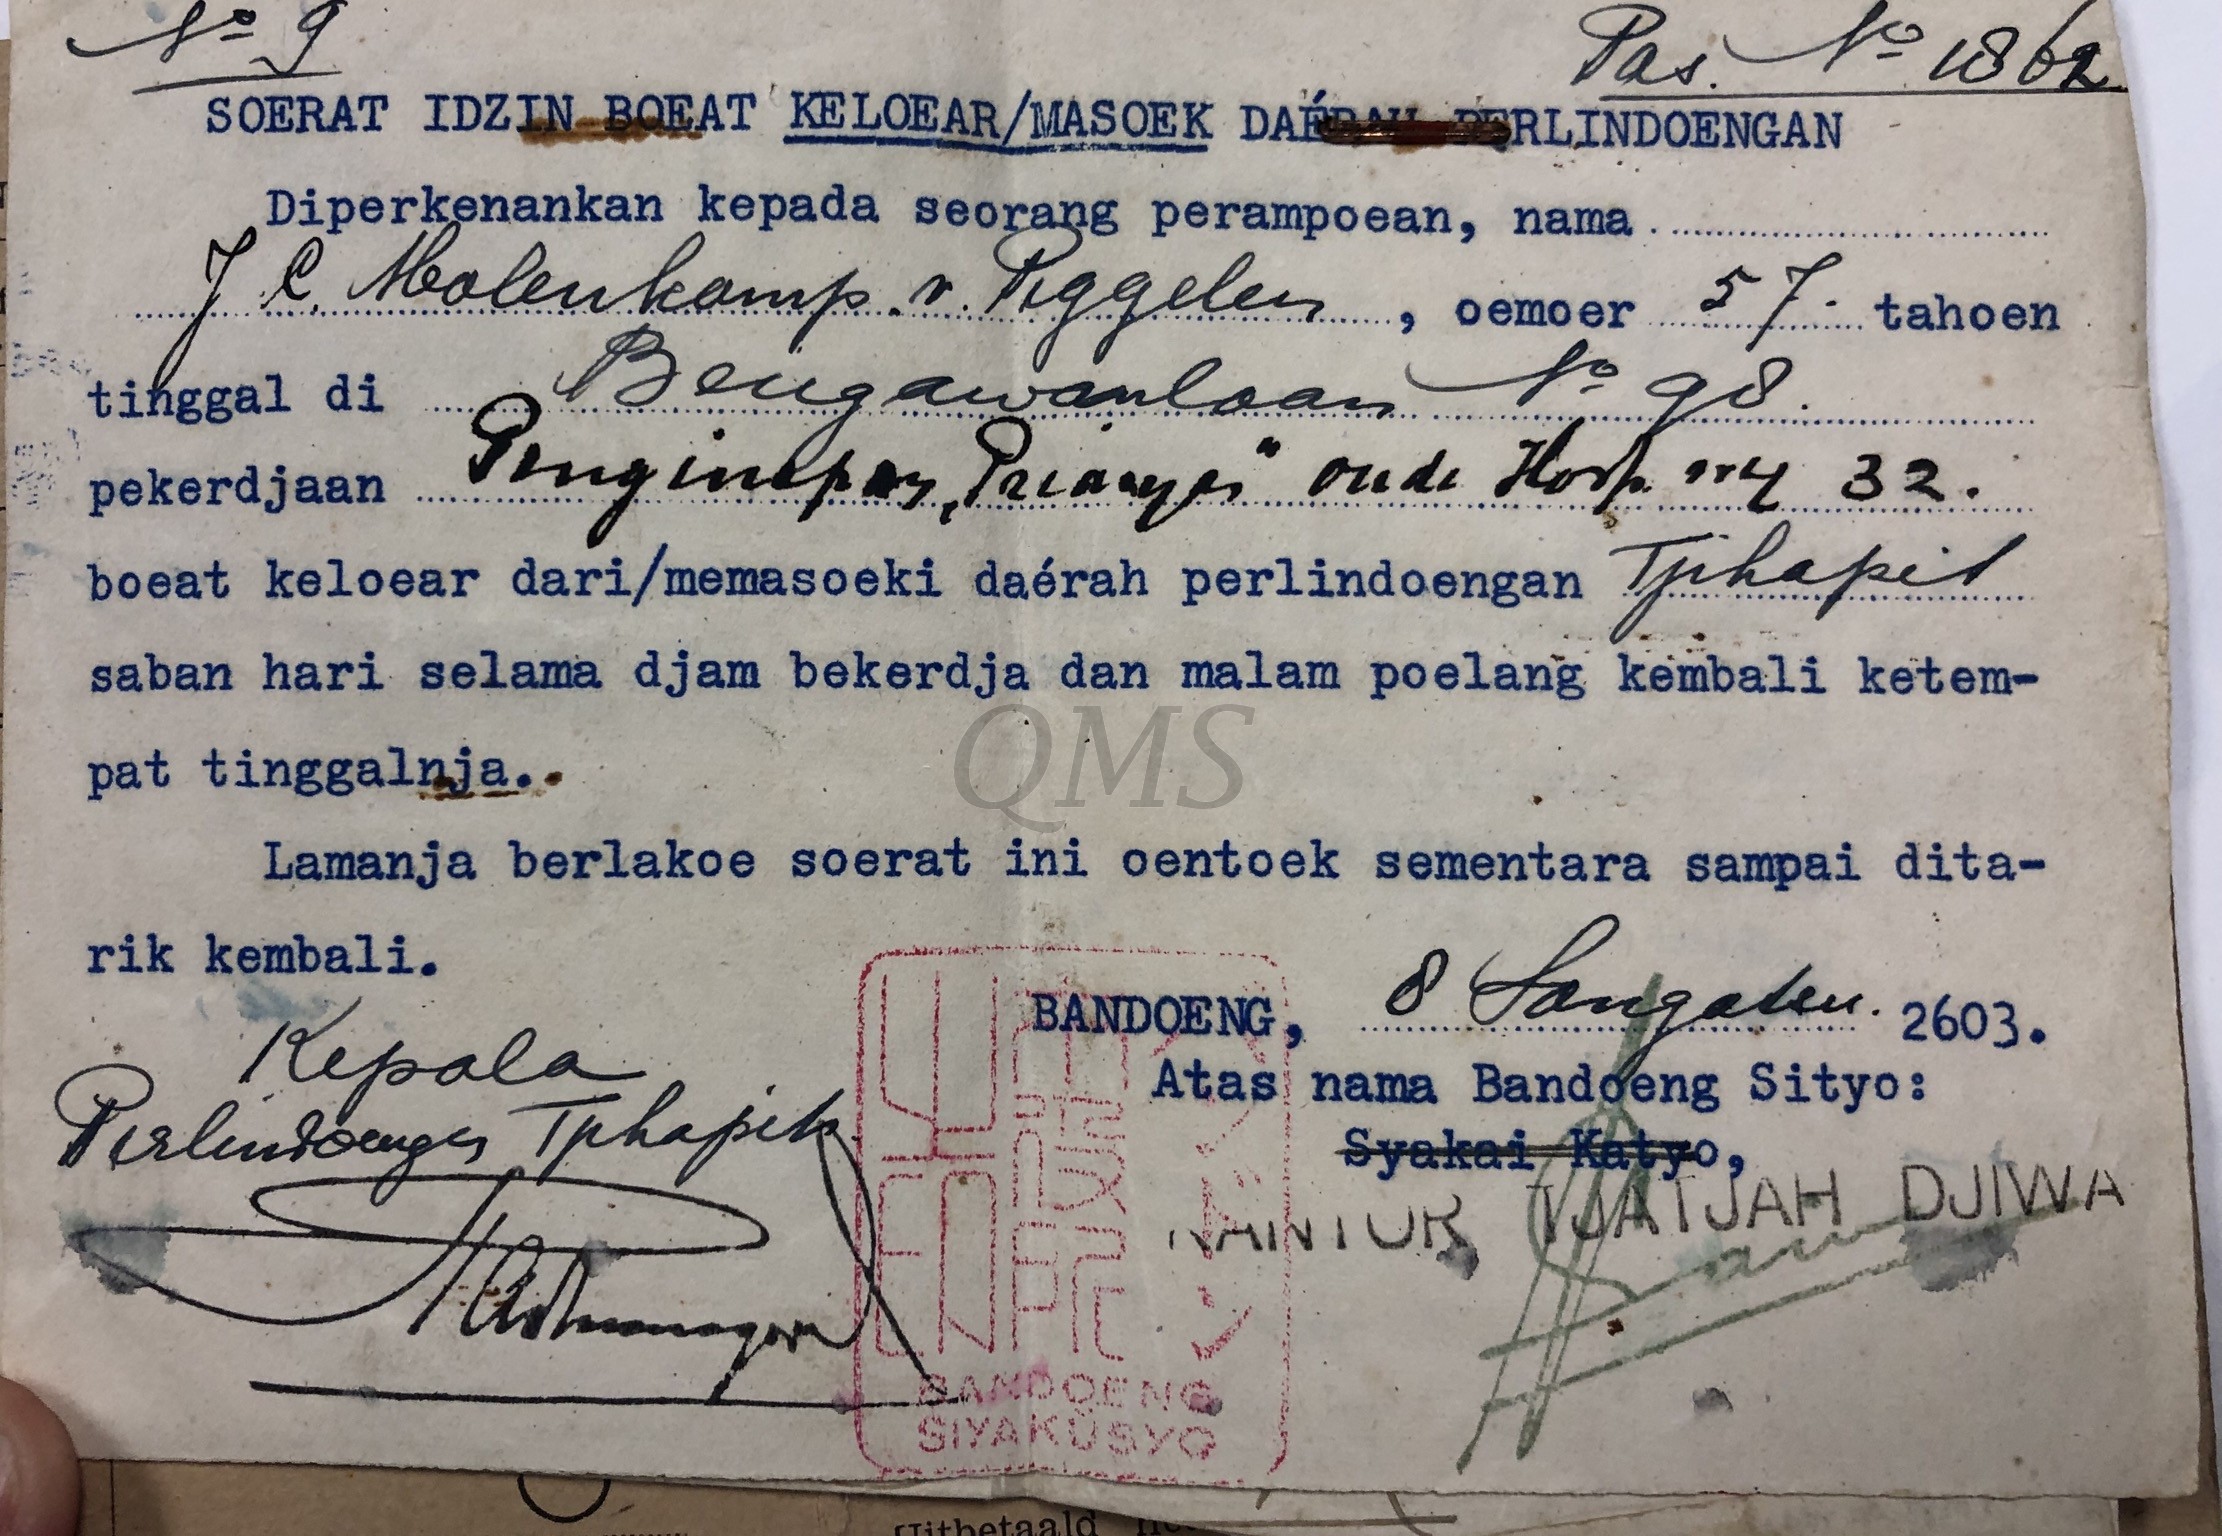 No 9
Pas. No 1862
SOERAT IDZIN BOEAT KELOEAR/MASOEK DAÉRAH PERLINDOENGAN
Diperkenankan kepada seorang perampoean, nama
J C. Molenkamp. v. Piggelen, oemoer 57. tahoen
tinggal di Bengawanlaan No 98.
pekerdjaan Penginapan „Prianger" oude Hosp. weg 32.
boeat keloear dari/memasoeki daérah perlindoengan Tjihapit
saban hari selama djam bekerdja dan malam poelang kembali ketem-
pat tinggalnja.
Lamanja berlakoe soerat ini oentoek sementara sampai dita-
rik kembali.
BANDOENG, 8 Sangatsu. 2603.
Atas nama Bandoeng Sityo:
Syakai Katyo,
KANTOR TJATJAH DJIWA
Kepala
Perlindoengan Tjihapit
BANDOENG
SIYAKUSYO
QMS
Uitbetaald